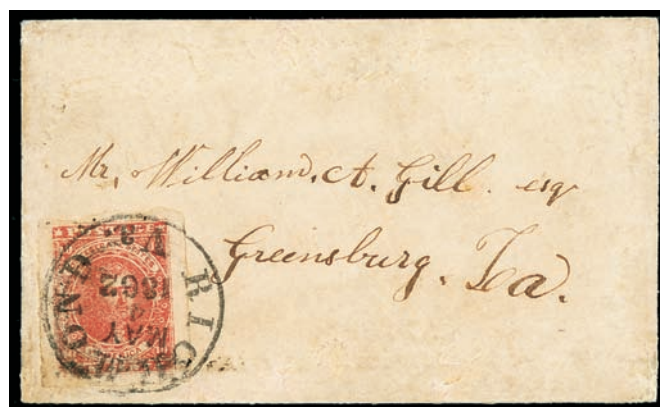 Mr. William. A. Gill. esq
Greensburg. La.
RICHMOND
Va.
1862
4
MAY